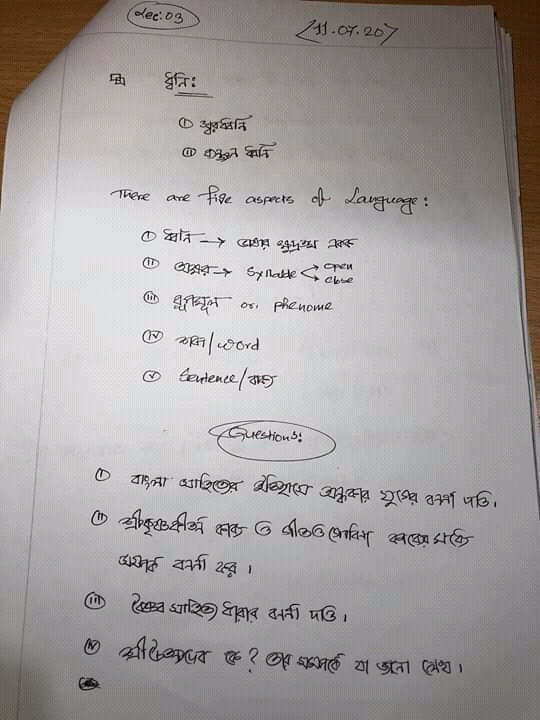 Lec: 03
[11.07.20]
ধ্বনি:
(i) স্বরধ্বনি
(ii) ব্যঞ্জন ধ্বনি
There are five aspects of Language:
(i) ধ্বনি → ভাষার ক্ষুদ্রতম একক
(ii) অক্ষর → Syllable < open
close
(iii) রূপমূল or, phenome
(iv) শব্দ/word
(v) Sentence/বাক্য
Questions:
(i) বাংলা সাহিত্যের ইতিহাসে অন্ধকার যুগের বর্ণনা দাও।
(ii) শ্রীকৃষ্ণকীর্তন কাব্য ও গীতগোবিন্দ কাব্যের মধ্যে
সম্পর্ক বর্ণনা কর।
(iii) বৈষ্ণব সাহিত্য ধারার বর্ণনা দাও।
(iv) শ্রীচৈতন্যদেব কে? তার সম্পর্কে যা জানো লেখ।